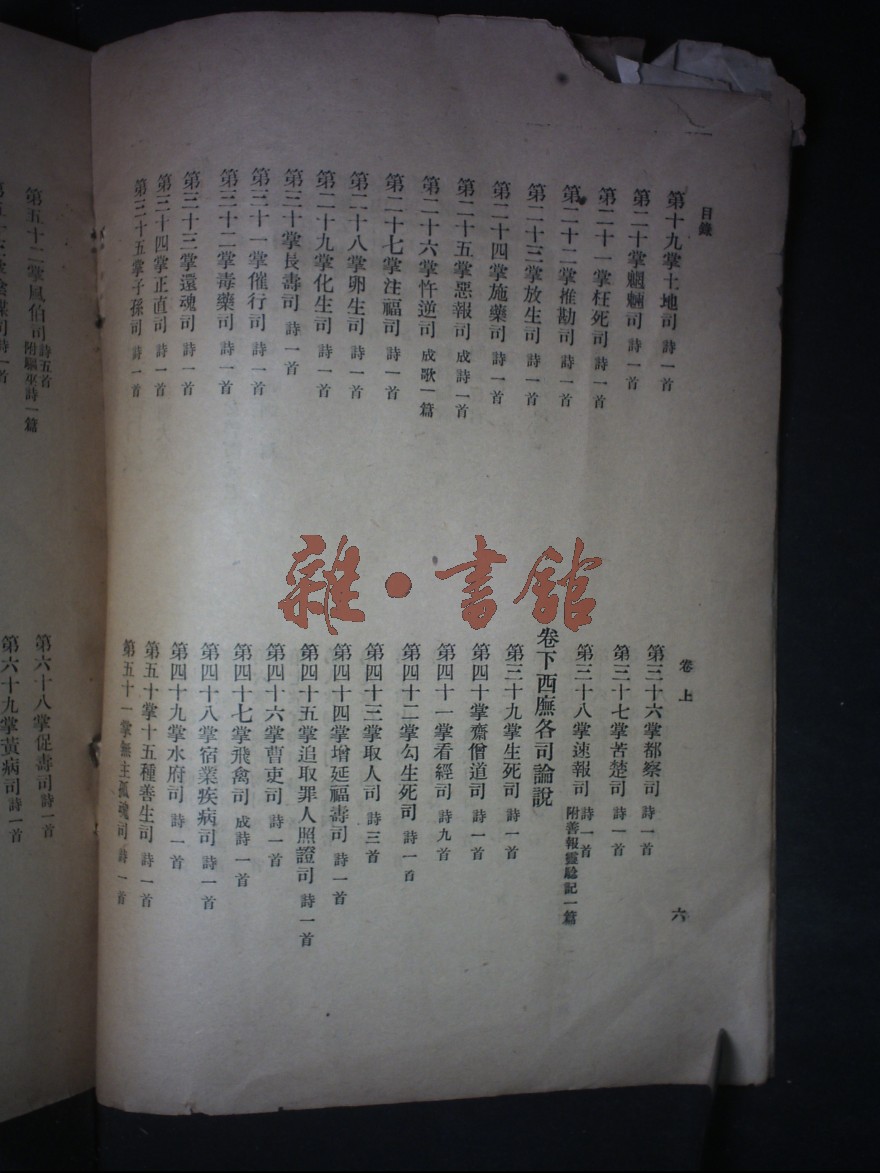 目錄
卷上
六
第十九掌土地司 詩一首
第二十掌魍魎司 詩一首
第二十一掌枉死司 詩一首
第二十二掌推勘司 詩一首
第二十三掌放生司 詩一首
第二十四掌施藥司 詩一首
第二十五掌惡報司 成詩一首
第二十六掌忤逆司 成歌一篇
第二十七掌注福司 詩一首
第二十八掌卵生司 詩一首
第二十九掌化生司 詩一首
第三十掌長壽司 詩一首
第三十一掌催行司 詩一首
第三十二掌毒藥司 詩一首
第三十三掌還魂司 詩一首
第三十四掌正直司 詩一首
第三十五掌子孫司 詩一首
第三十六掌都察司 詩一首
第三十七掌苦楚司 詩一首
第三十八掌速報司 詩一首 附善報靈驗記一篇
卷下西廡各司論說
第三十九掌生死司 詩一首
第四十掌齋僧道司 詩一首
第四十一掌看經司 詩九首
第四十二掌勾生死司 詩一首
第四十三掌取人司 詩三首
第四十四掌增延福壽司 詩一首
第四十五掌追取罪人照證司 詩一首
第四十六掌曹吏司 詩一首
第四十七掌飛禽司 成詩一首
第四十八掌宿業疾病司 詩一首
第四十九掌水府司 詩一首
第五十掌十五種善生司 詩一首
第五十一掌無主孤魂司 詩一首
第五十二掌風伯司 詩五首 附驅巫詩一篇
第六十八掌促壽司 詩一首
第六十九掌黃病司 詩一首
雜·書館